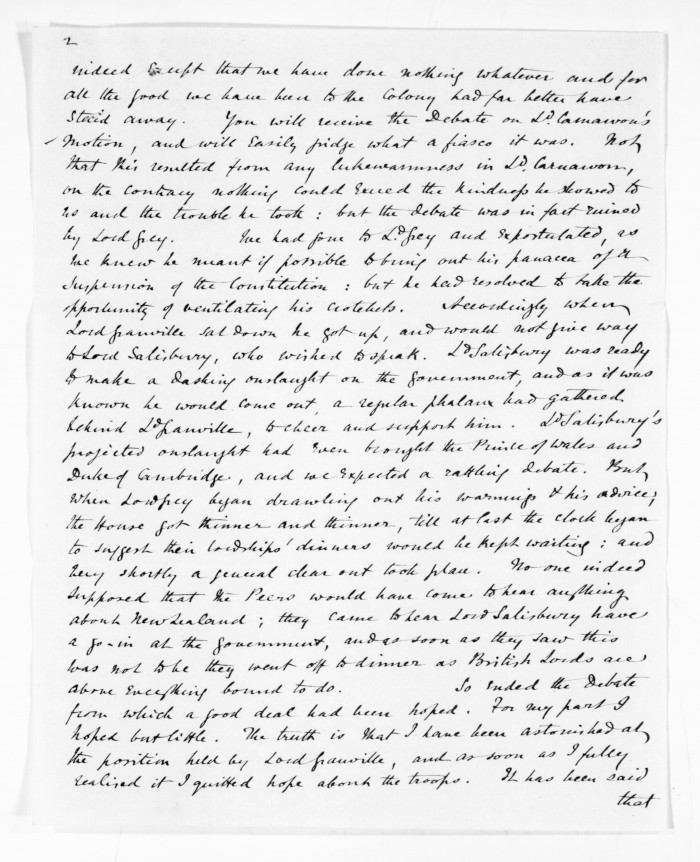 2
indeed except that we have done nothing whatever and for
all the good we have been to the Colony had far better have
staid away. You will receive the Debate on Ld. Carnarvon's
Motion, and will easily judge what a fiasco it was. Not
that this resulted from any lukewarmness in Ld. Carnarvon,
on the contrary nothing could exceed the kindness he showed to
us and the trouble he took: but the debate was in fact ruined
by Lord Grey. We had gone to Ld. Grey and expostulated, as
we knew he meant if possible to bring out his panacea of a
suspension of the Constitution: but he had resolved to take the
opportunity of ventilating his crotchets. Accordingly when
Lord Granville sat down he got up, and would not give way
to Lord Salisbury, who wished to speak. Ld Salisbury was ready
to make a dashing onslaught on the government, and as it was
known he would come out, a regular phalanx had gathered
behind Ld Granville, to cheer and support him. Ld Salisbury's
projected onslaught had even brought the Prince of Wales and
Duke of Cambridge, and we expected a rattling debate. But
when Lord Grey began drawling out his warnings & his advice,
the House got thinner and thinner, till at last the clock began
to suggest their lordships' dinners would be kept waiting: and
very shortly a general clear out took place. No one indeed
supposed that the Peers would have come to hear anything
about New Zealand; they came to hear Lord Salisbury have
a go-in at the government, and as soon as they saw this
was not to be they went off to dinner as British Lords are
above everything bound to do. So ended the Debate
from which a good deal had been hoped. For my part I
hoped but little. The truth is that I have been astonished at
the position held by Lord Granville, and as soon as I fully
realised it I quitted hope about the troops. It has been said
that